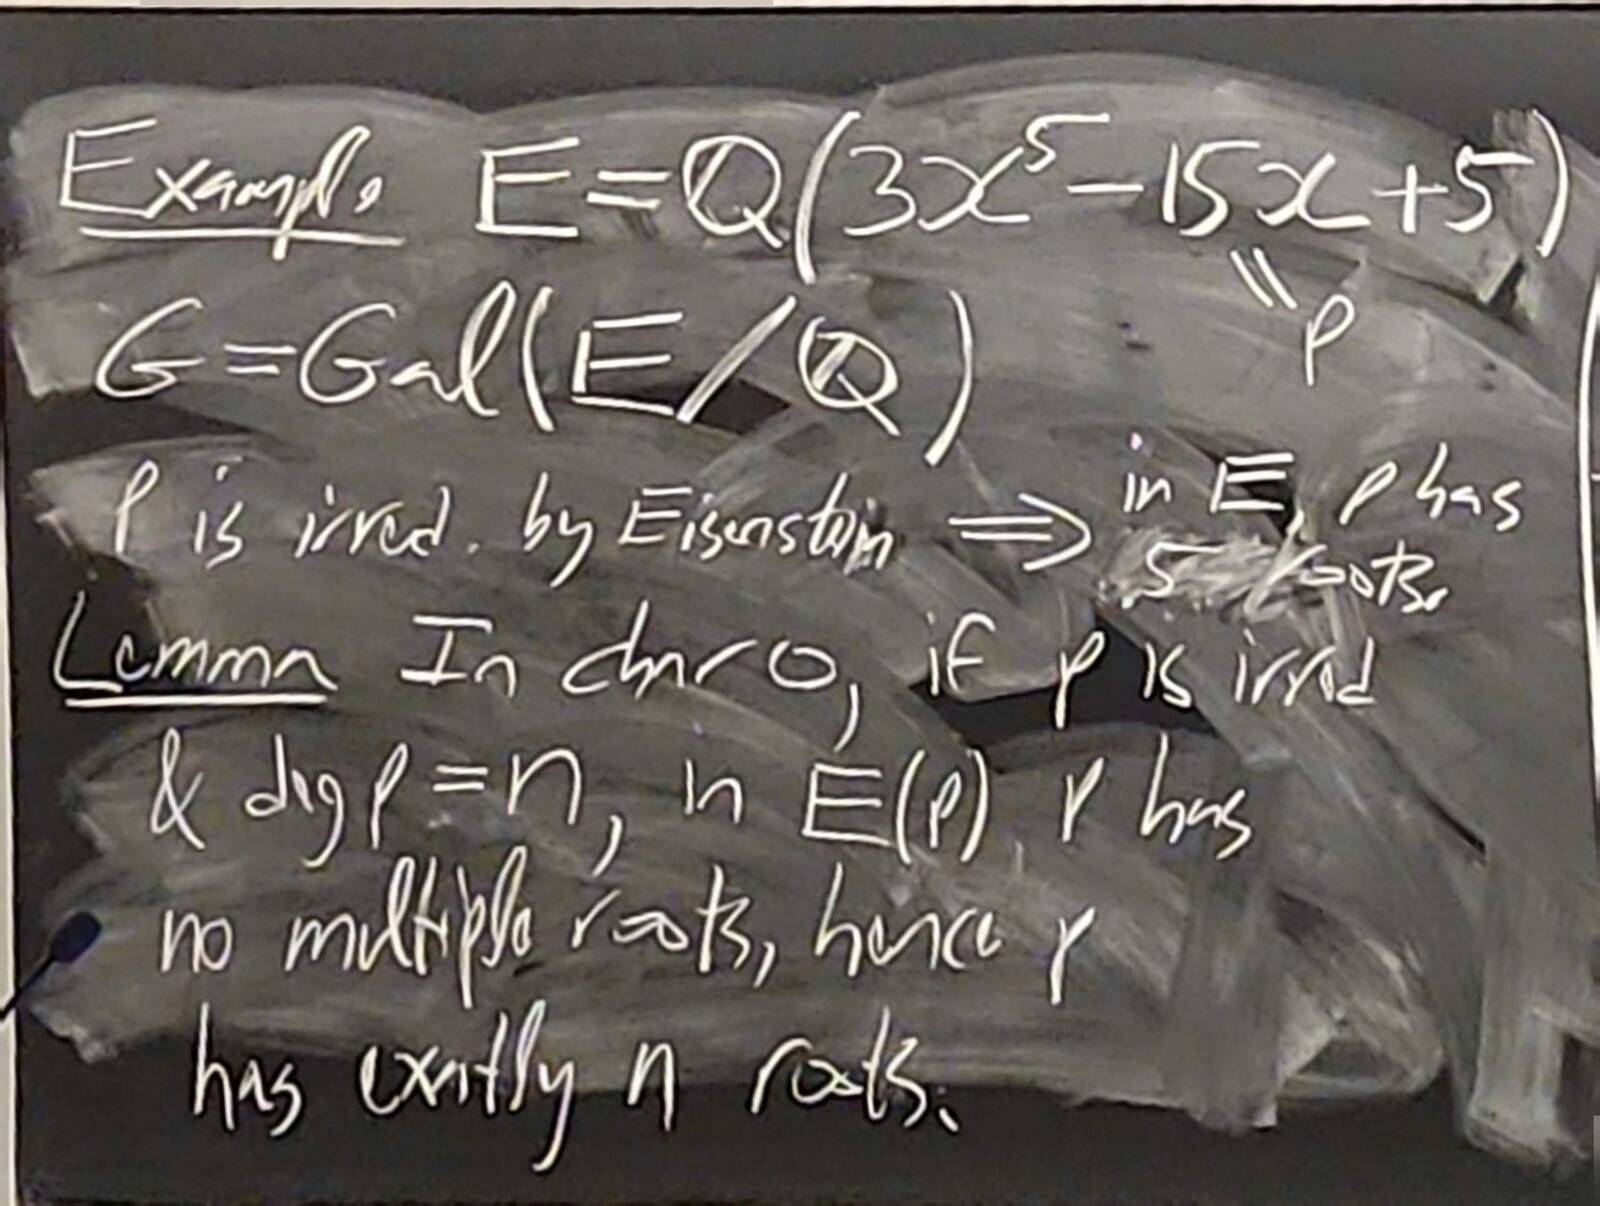 Example E=Q(3x⁵-15x+5)
" p
G=Gal(E/Q)
p is irred. by Eisenstein ⟹ in E, p has
5 roots.
Lemma In char 0, if p is irred
& deg p=n, in E(p) p has
no multiple roots, hence p
has exactly n roots.